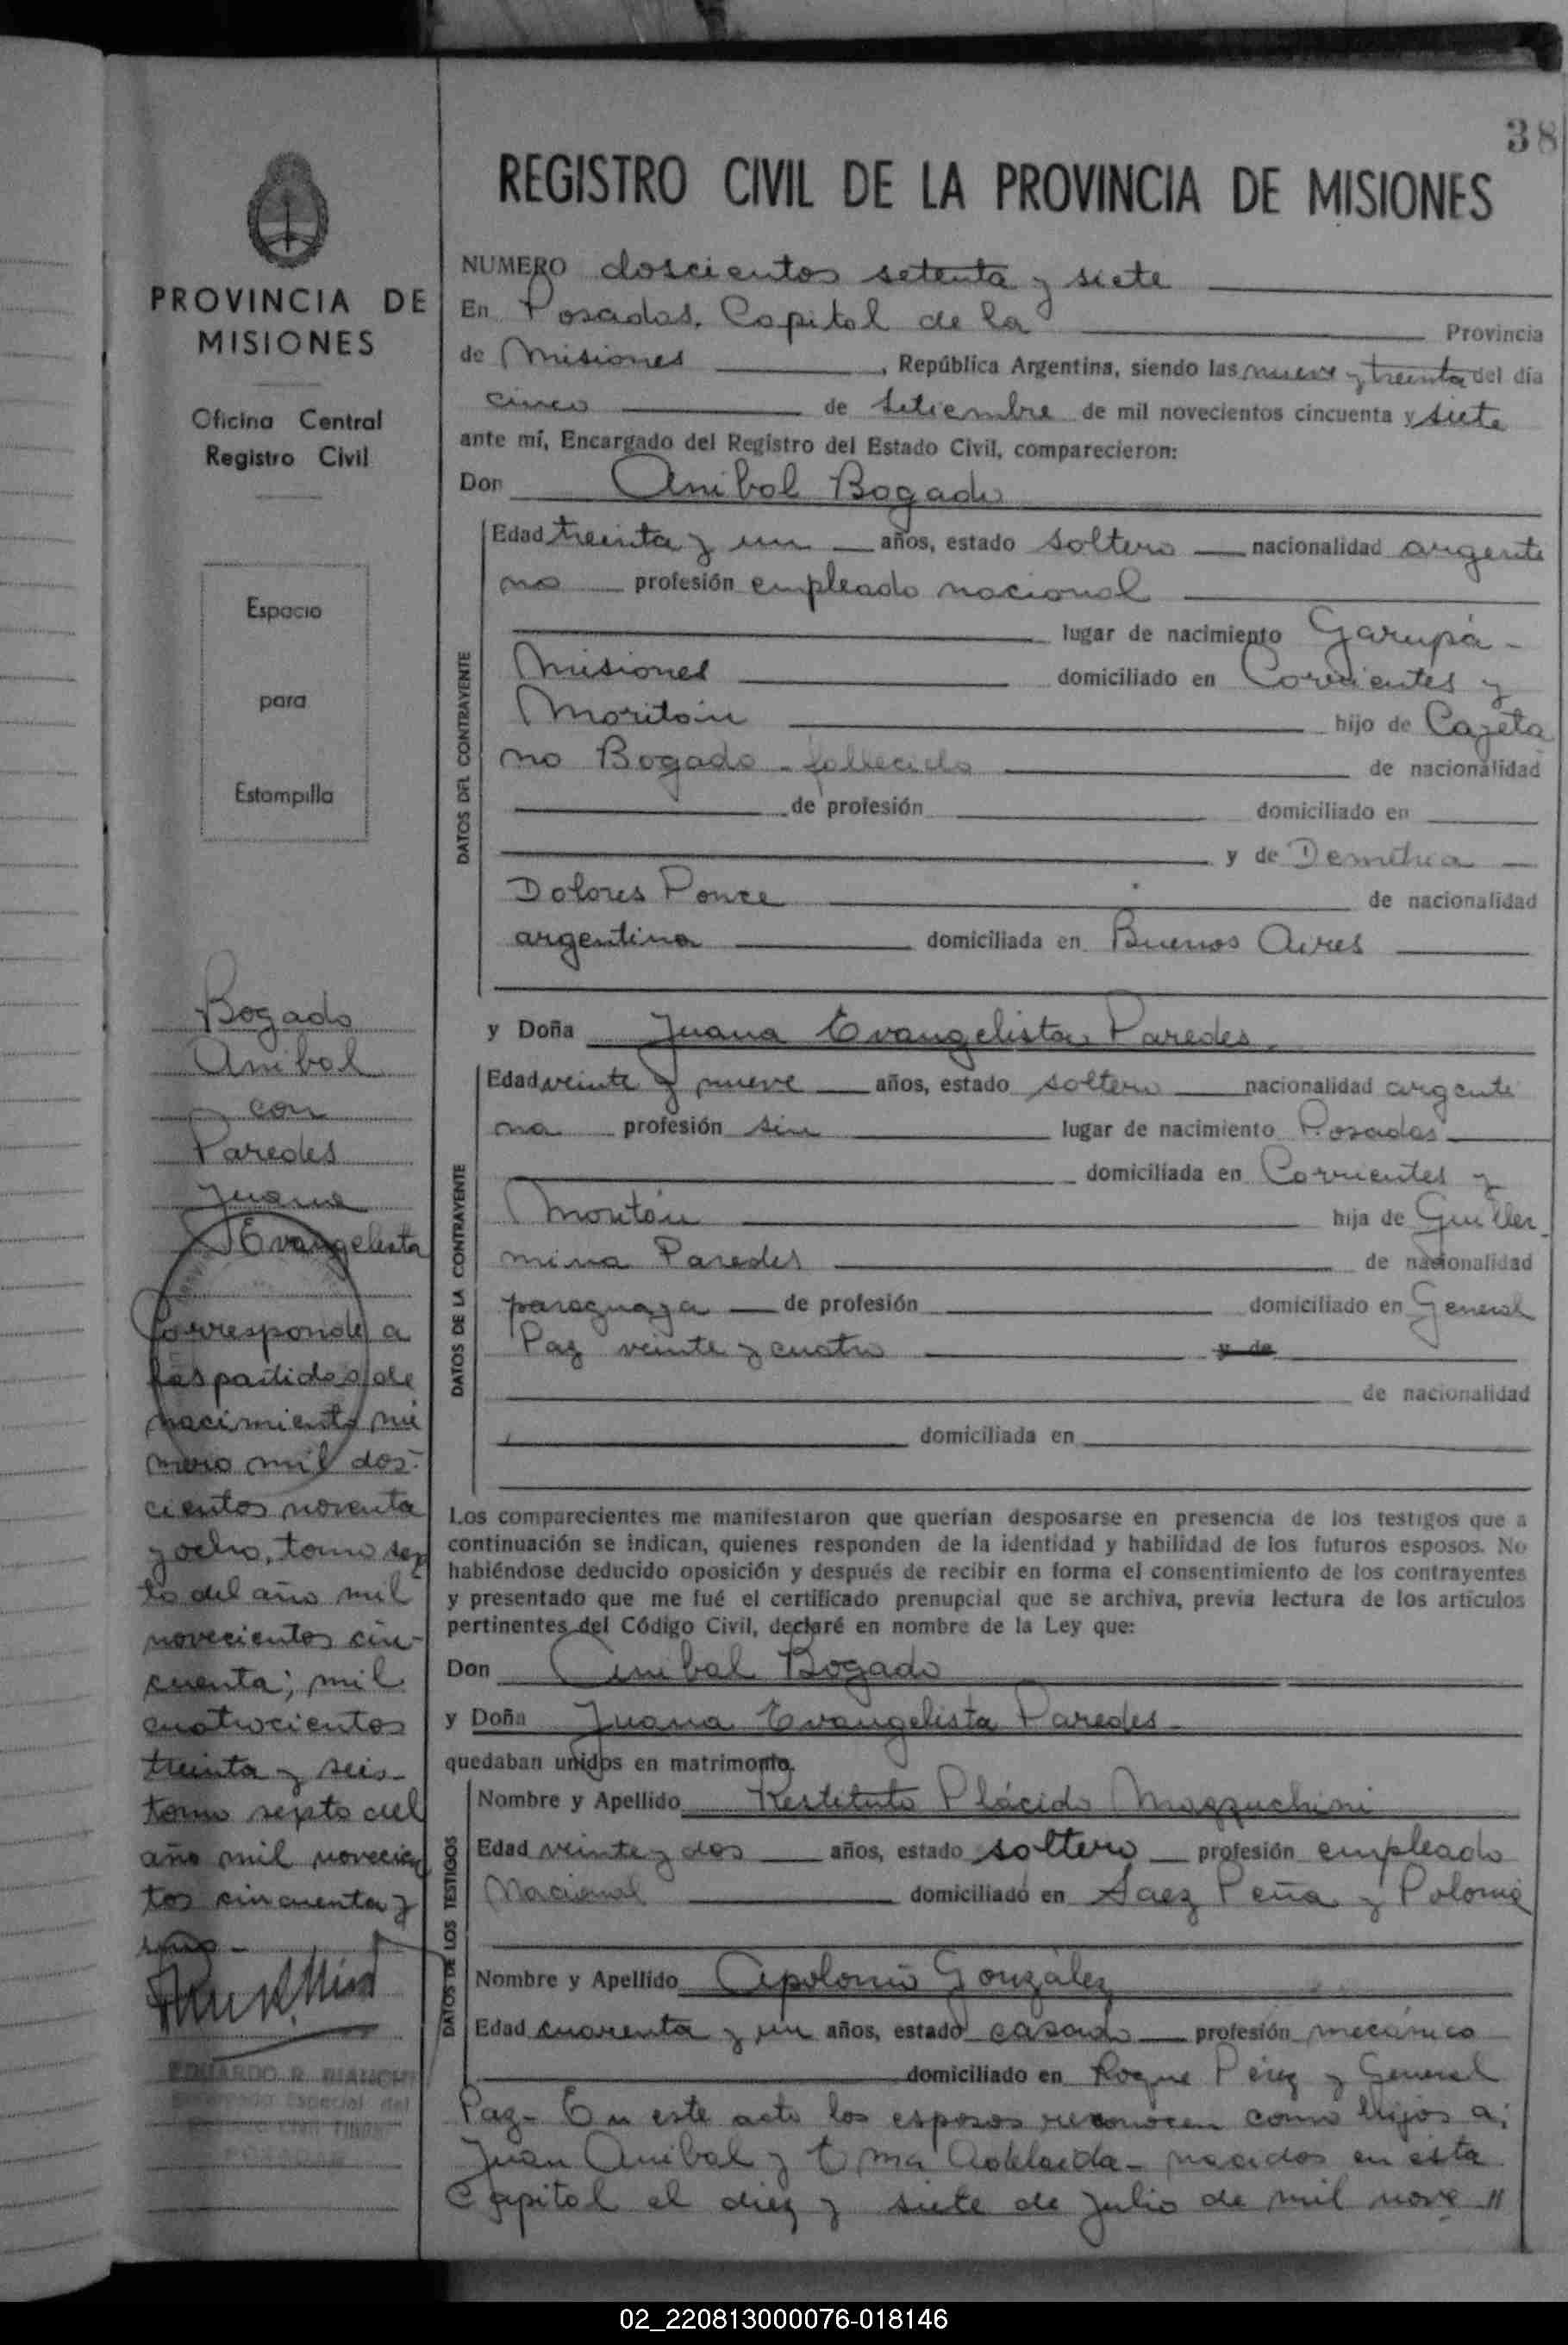 38
REGISTRO CIVIL DE LA PROVINCIA DE MISIONES
PROVINCIA DE
MISIONES
Oficina Central
Registro Civil
Espacio
para
Estampilla
Bogado
Anibal
con
Paredes
Juana
Evangelista
Corresponde a
las partidas de
nacimiento nú
mero mil dos-
cientos noventa
y ocho, tomo sex
to del año mil
novecientos cin-
cuenta; mil
cuatrocientos
treinta y seis
tomo sexto del
año mil novecien
tos cincuenta y
uno -
EDUARDO R. BIANCHI
Encargado Especial del
POSADAS
NUMERO doscientos setenta y siete
En Posadas, Capital de la Provincia
de Misiones, República Argentina, siendo las nueve y treinta del día
cinco de setiembre de mil novecientos cincuenta y siete
ante mí, Encargado del Registro del Estado Civil, comparecieron:
Don Anibal Bogado
DATOS DEL CONTRAYENTE
Edad treinta y un años, estado soltero nacionalidad argenti
no profesión empleado nacional
lugar de nacimiento Garupá -
Misiones domiciliado en Corrientes y
Moritán hijo de Cayeta
no Bogado - fallecido de nacionalidad
de profesión domiciliado en
y de Demetria
Dolores Ponce de nacionalidad
argentina domiciliada en Buenos Aires
y Doña Juana Evangelista Paredes
DATOS DE LA CONTRAYENTE
Edad veinte y nueve años, estado soltera nacionalidad argenti
na profesión sin lugar de nacimiento Posadas
domiciliada en Corrientes y
Moritán hija de Guiller
mina Paredes de nacionalidad
paraguaya de profesión domiciliado en General
Paz veinte y cuatro y de
de nacionalidad
domiciliada en
Los comparecientes me manifestaron que querían desposarse en presencia de los testigos que a
continuación se indican, quienes responden de la identidad y habilidad de los futuros esposos. No
habiéndose deducido oposición y después de recibir en forma el consentimiento de los contrayentes
y presentado que me fué el certificado prenupcial que se archiva, previa lectura de los artículos
pertinentes del Código Civil, declaré en nombre de la Ley que:
Don Anibal Bogado
y Doña Juana Evangelista Paredes
quedaban unidos en matrimonio.
DATOS DE LOS TESTIGOS
Nombre y Apellido Restituto Plácido Mazzuchini
Edad veinte y dos años, estado soltero profesión empleado
Nacional domiciliado en Saez Peña y Polonia
Nombre y Apellido Apolonio González
Edad cuarenta y un años, estado casado profesión mecánico
domiciliado en Roque Pérez y General
Paz - En este acto los esposos reconocen como hijos a;
Juan Anibal y Ema Adelaida - nacidos en esta
Capital el diez y siete de julio de mil nove "
02_220813000076-018146